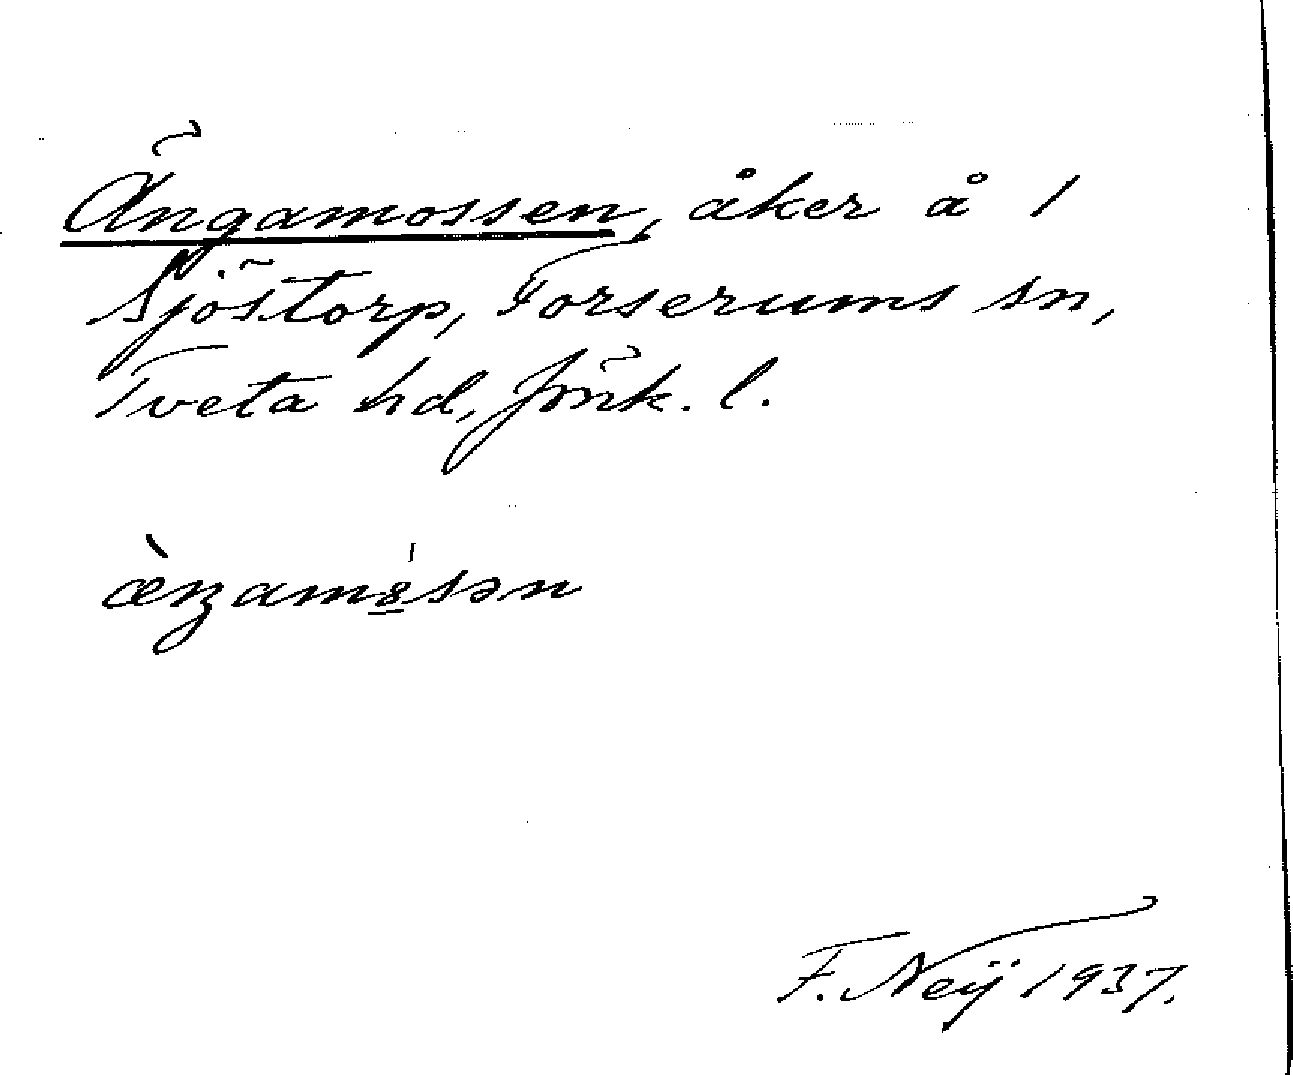 Ängamossen, åker å 1
Sjöstorp, Forserums sn,
Tveta hd, Jönk. l.
æ̀ŋam8̲́sən
F. Neÿ 1937.